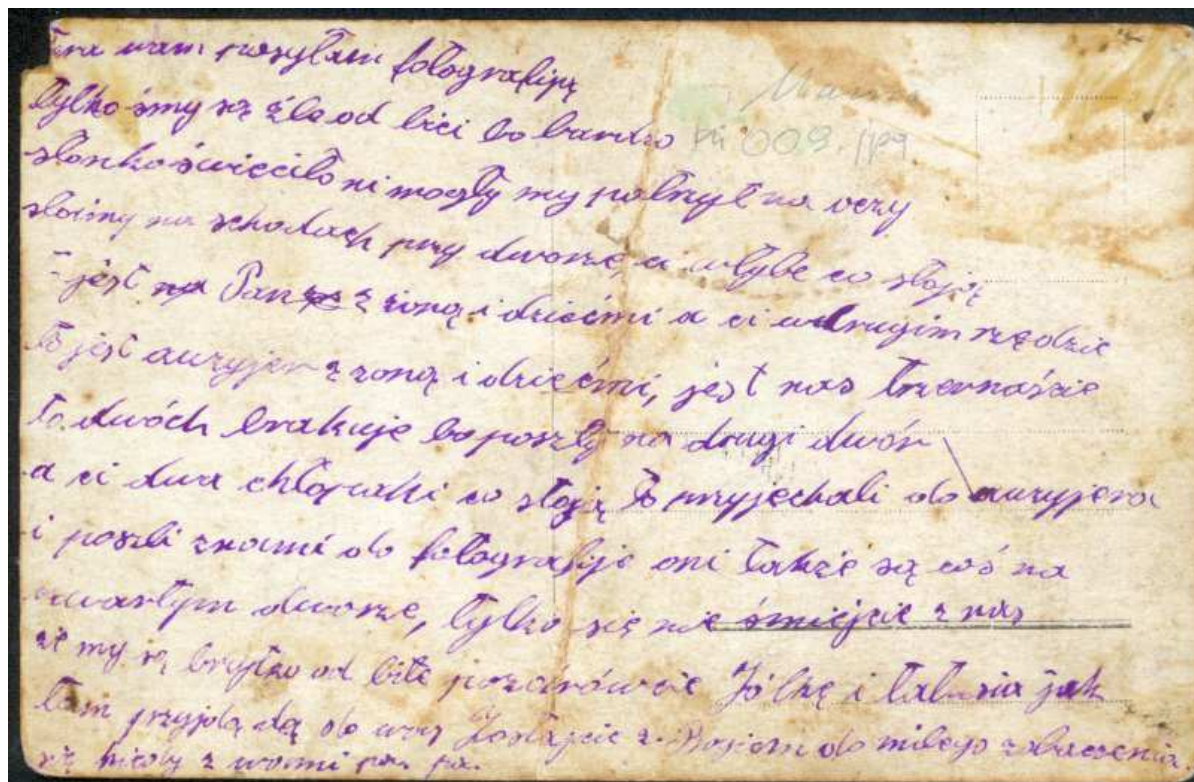 wam posyłam fotografiję
tylko śmy są źle od bici bo bardzo
słonko świeciło ni mogły my patrzyć na oczy
stoimy na schodach przy dworze ci w tyle co stoją
jest Pan z żoną i dziećmi a ci w drugim rzędzie
to jest auzyjer z żoną i dziećmi, jest nas trzernaście
to dwóch brakuje bo poszły na drugi dwór
a ci dwa chłopaki co stoją to przyjechali do auzyjera
i poszli znami do fotografije oni także są coś na
czwartym dworze, tylko się nie śmiejcie z nas
że my są brzytko od bite pozdrówcie Jólkę i tatusia jak
tam przyjdą do was Zostajcie z Bogiem do miłego zobaczenia
z wami pa. pa.
Mi 009. 1/29